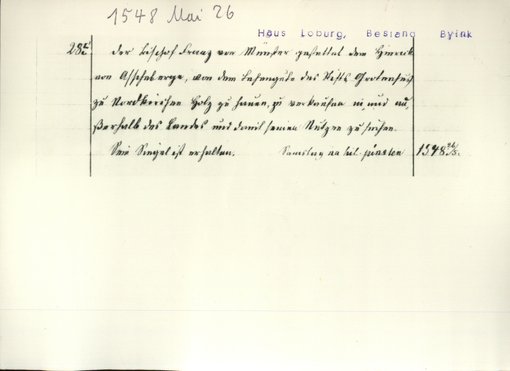 1548 Mai 26
Haus Loburg, Bestand Byink
28. Der Bischof Franz von Münster gestattet dem Heinrich
von Asscheberge, von dem Lehengute des Stifts Grotenhaus
zu Nordkirchen Holz zu hauen, zu verkaufen in und au-
ßerhalb des Landes und damit seinen Nutzen zu suchen.
Sein Siegel ist erhalten. Samstag na hil. pinxten 1548 26/5.